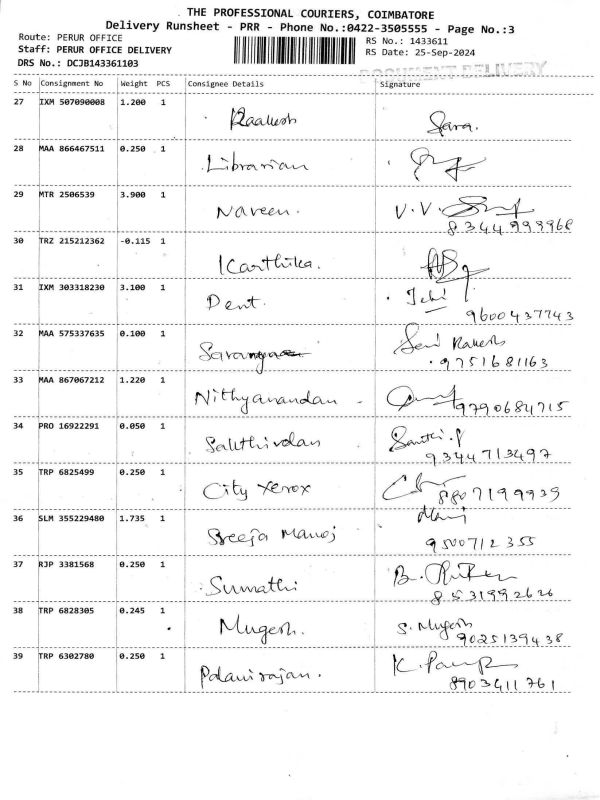 THE PROFESSIONAL COURIERS, COIMBATORE
Delivery Runsheet - PRR - Phone No.:0422-3505555 - Page No.:3
Route: PERUR OFFICE
RS No.: 1433611
Staff: PERUR OFFICE DELIVERY
RS Date: 25-Sep-2024
DRS No.: DCJB143361103
DOCUMENT DELIVERY
S No Consignment No Weight PCS Consignee Details Signature
27 IXM 507090008 1.200 1 Raakesh Sara.
28 MAA 866467511 0.250 1 Librarian
29 MTR 2506539 3.900 1 Naveen. V.V.
8344999968
30 TRZ 215212362 -0.115 1 Karthika.
31 IXM 303318230 3.100 1 Dent.
9600437743
32 MAA 575337635 0.100 1 Saranya Rakesh
9751681163
33 MAA 867067212 1.220 1 Nithyanandan
9790684715
34 PRO 16922291 0.050 1 Sakthivelan Santhi.P
9344713497
35 TRP 6825499 0.250 1 City Xerox
8807199939
36 SLM 355229480 1.735 1 Sreeja Manoj Manj
9500712355
37 RJP 3381568 0.250 1 Sumathi B.
8531992626
38 TRP 6828305 0.245 1 Mugesh. S. Mugesh
9025139438
39 TRP 6302780 0.250 1 Palanirajan. K.
8903411761